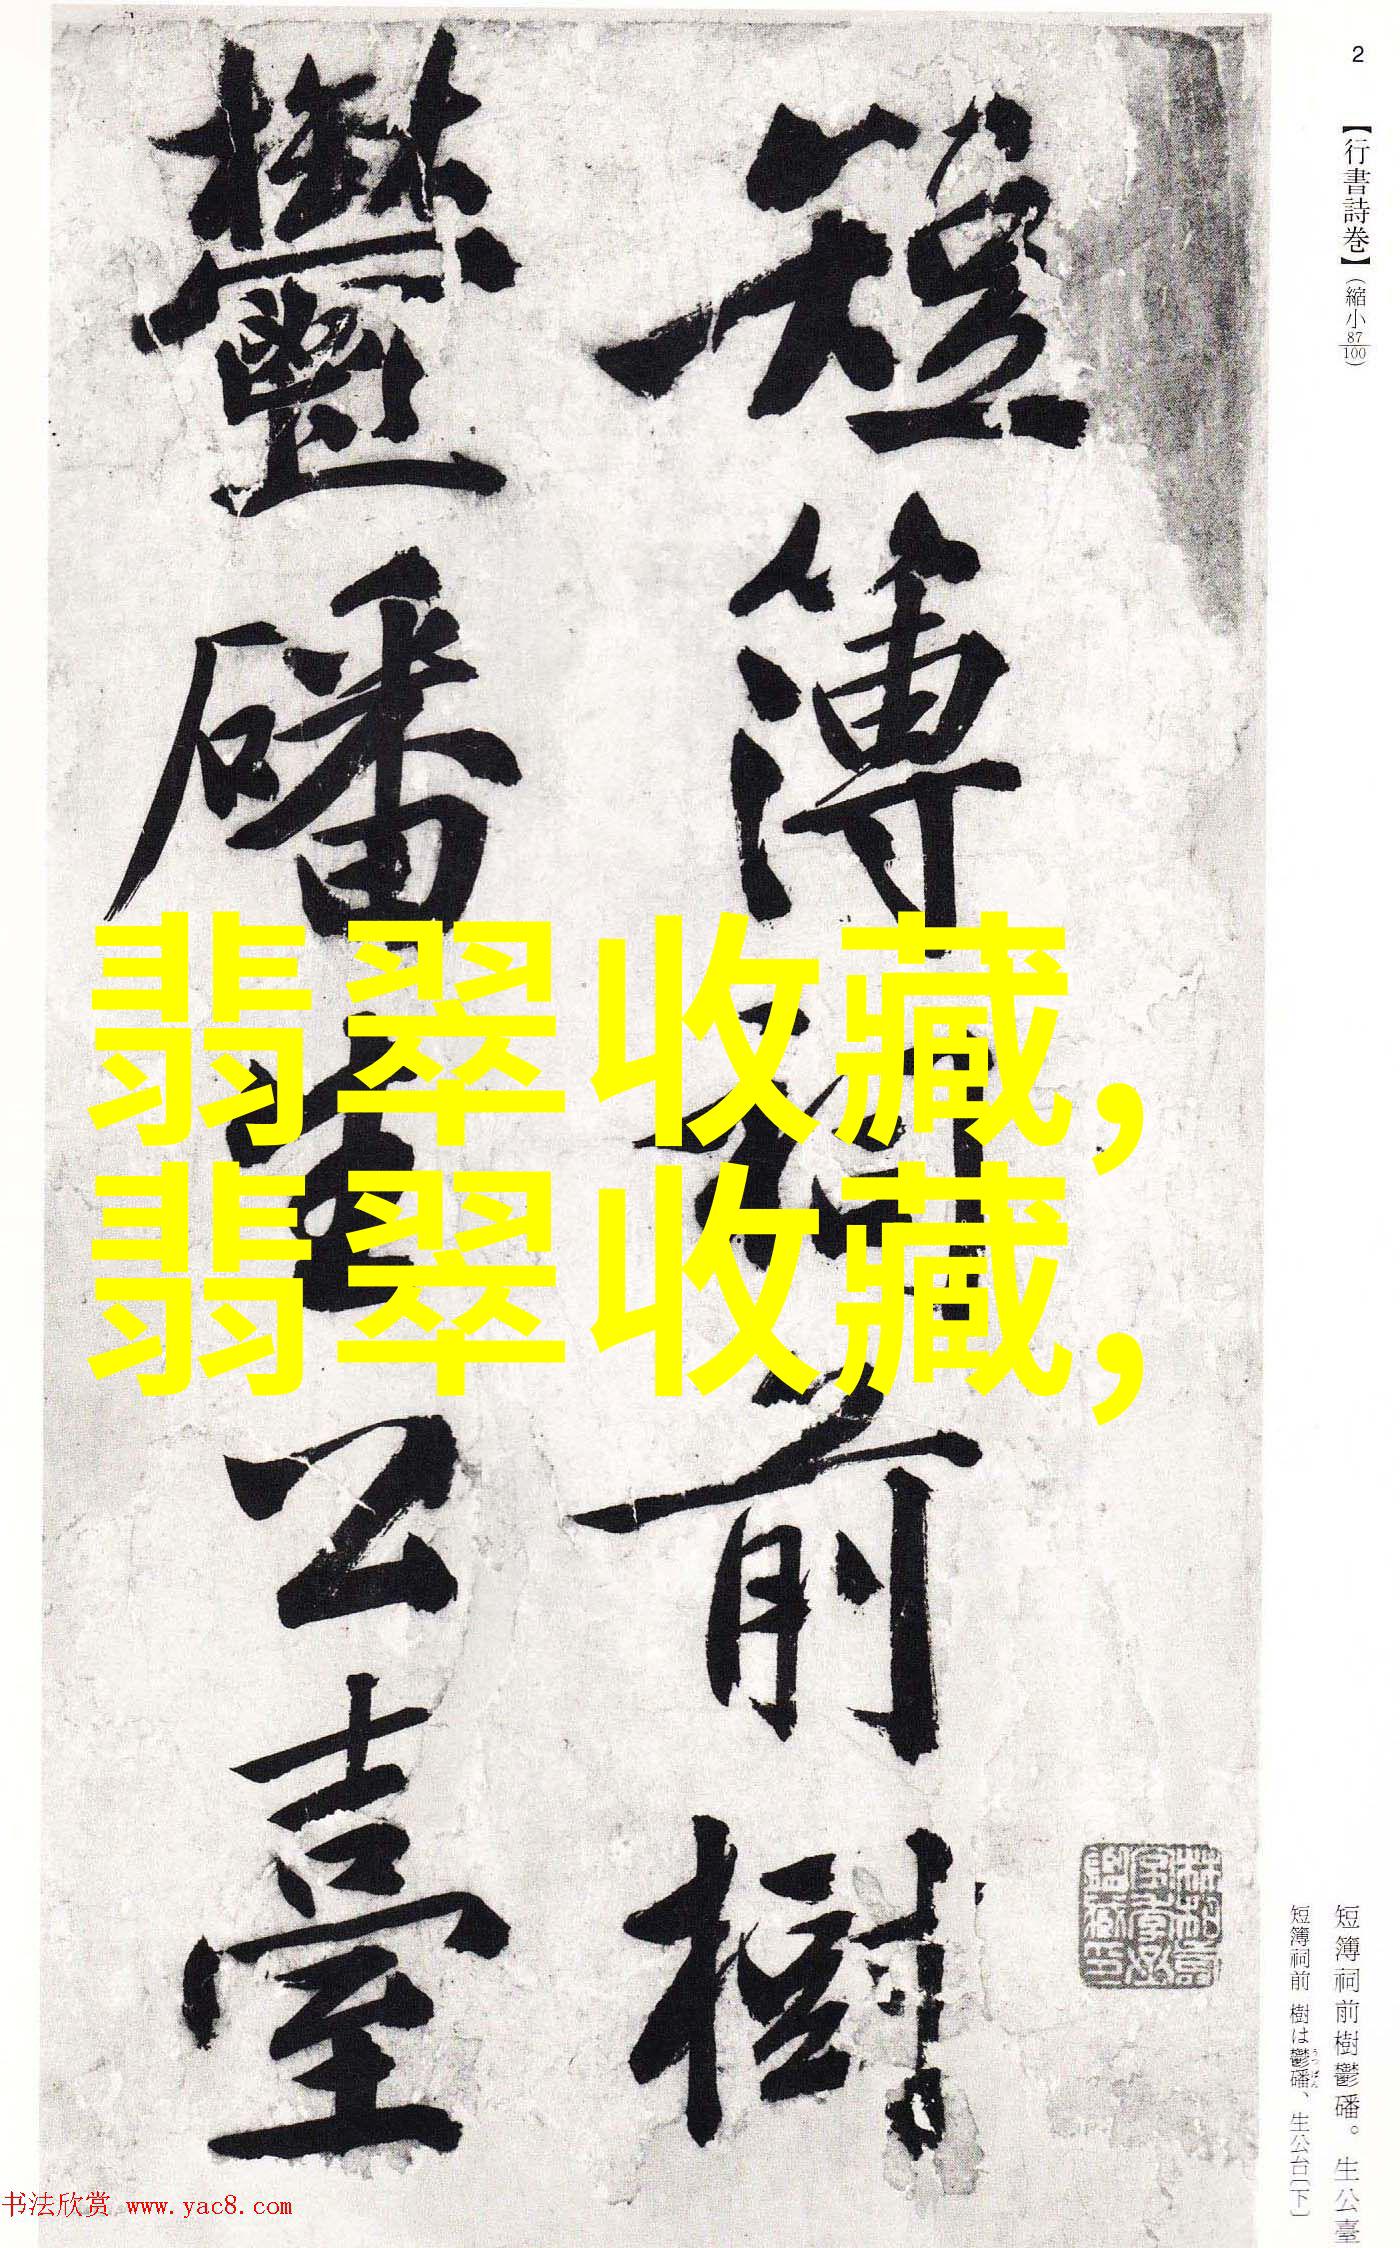 2
【行書詩巻】(縮小87/100)
短簿祠前樹
鬱磻生公臺
翡翠收藏，
翡翠收藏，
短簿祠前樹鬱磻。生公臺
短簿祠前 樹は鬱磻、生公台〔下〕
うっぱん
书法欣赏 www.yac8.com